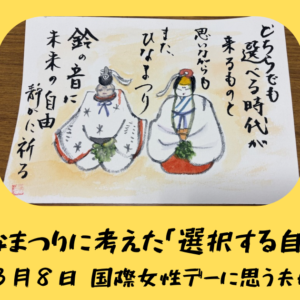 どちらでも
選べる時代が
来るものと
思いながらも
また、
ひなまつり
鈴の音に
未来の自由
静かに祈る
なまつりに考えた「選択する自
3月8日 国際女性デーに思う夫